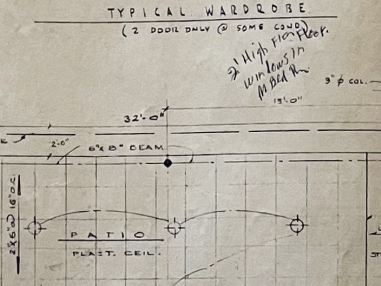 TYPICAL WARDROBE
(2 DOOR ONLY @ SOME COND)
2' High Flom Floor.
Windows In
M Bed Rm.
3" φ COL.
15'-0"
32'-0"
2'-0"
6"x8" BEAM
2x6 @ 16" O.C.
PATIO
PLAST. CEIL.